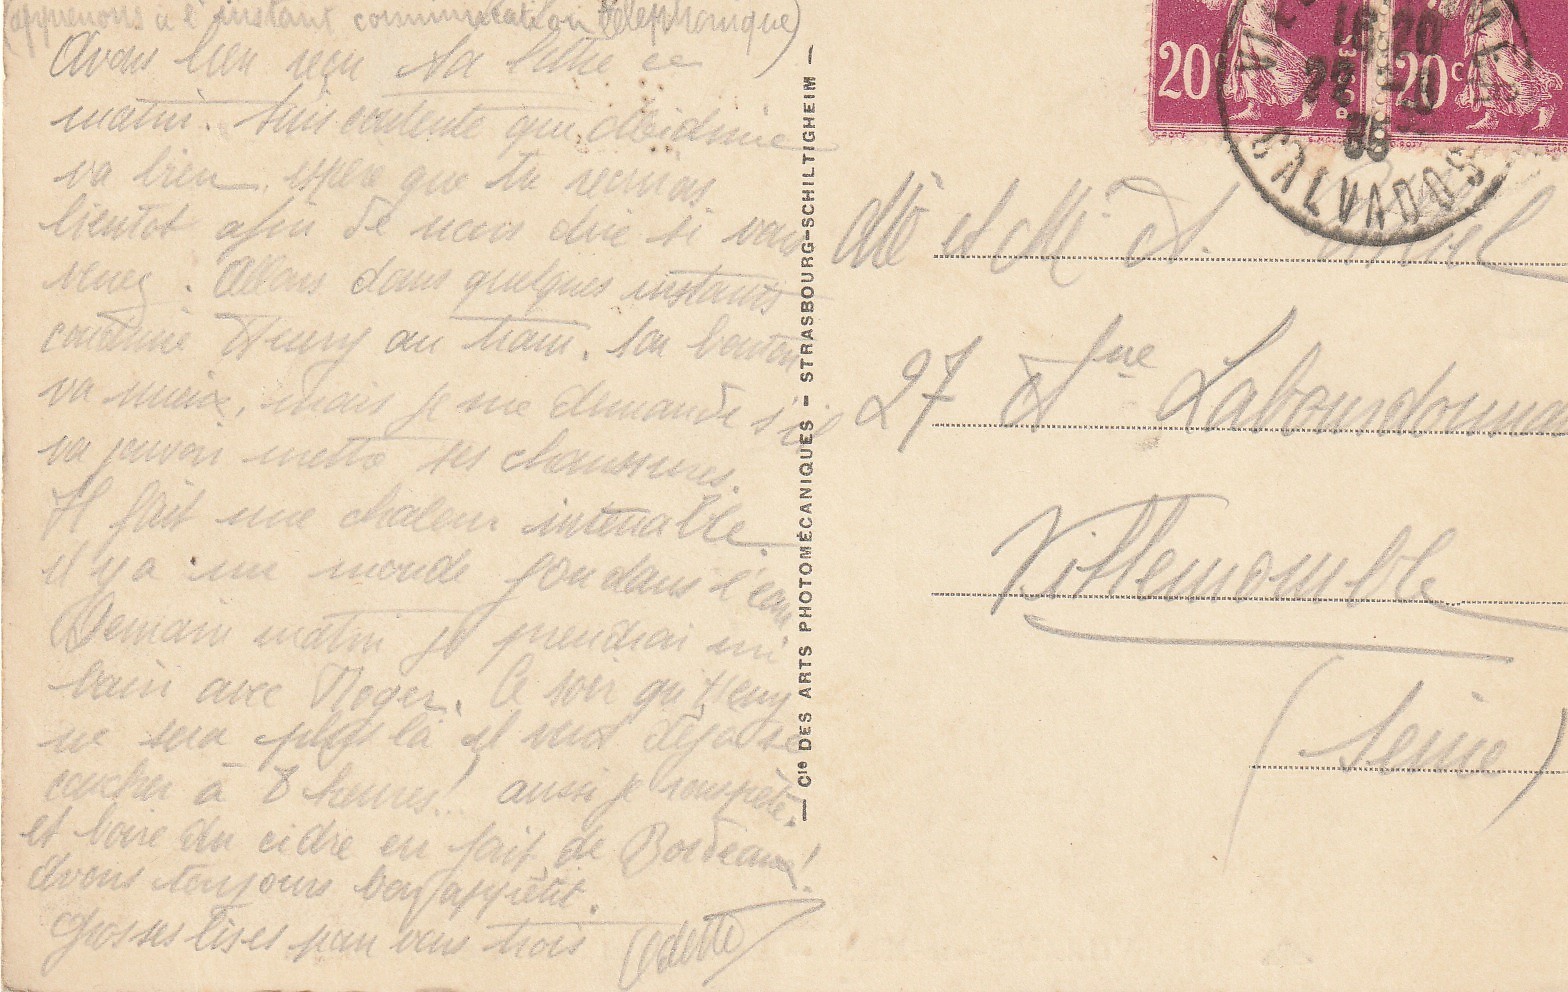 (apprenons à l'instant communication téléphonique)
Avons bien reçu ta lettre ce
matin. Suis contente que
va bien, espère que tu
bientôt afin de nous dire si vous
venez. Allons dans quelques instants
conduire Henry au train. Son bouton
va mieux, mais je me demande s'il
va pouvoir mettre ses chaussures.
Il fait une chaleur intenable
il y a un monde fou dans l'eau
Demain matin je prendrai mon
bain avec Roger. Ce soir qu'Henry
ne sera plus là il veut déjà se
coucher à 8 heures! aussi je
et boire du cidre en fait de Bordeaux!
avons toujours bon appétit.
Grosses bises pour vous trois Odette
— Cie DES ARTS PHOTOMÉCANIQUES — STRASBOURG-SCHILTIGHEIM —
20c POSTES 20c
16 20
22
CALVADOS
Mr et Me A.
27 Ave Labourdonnais
Villemomble
(Seine)